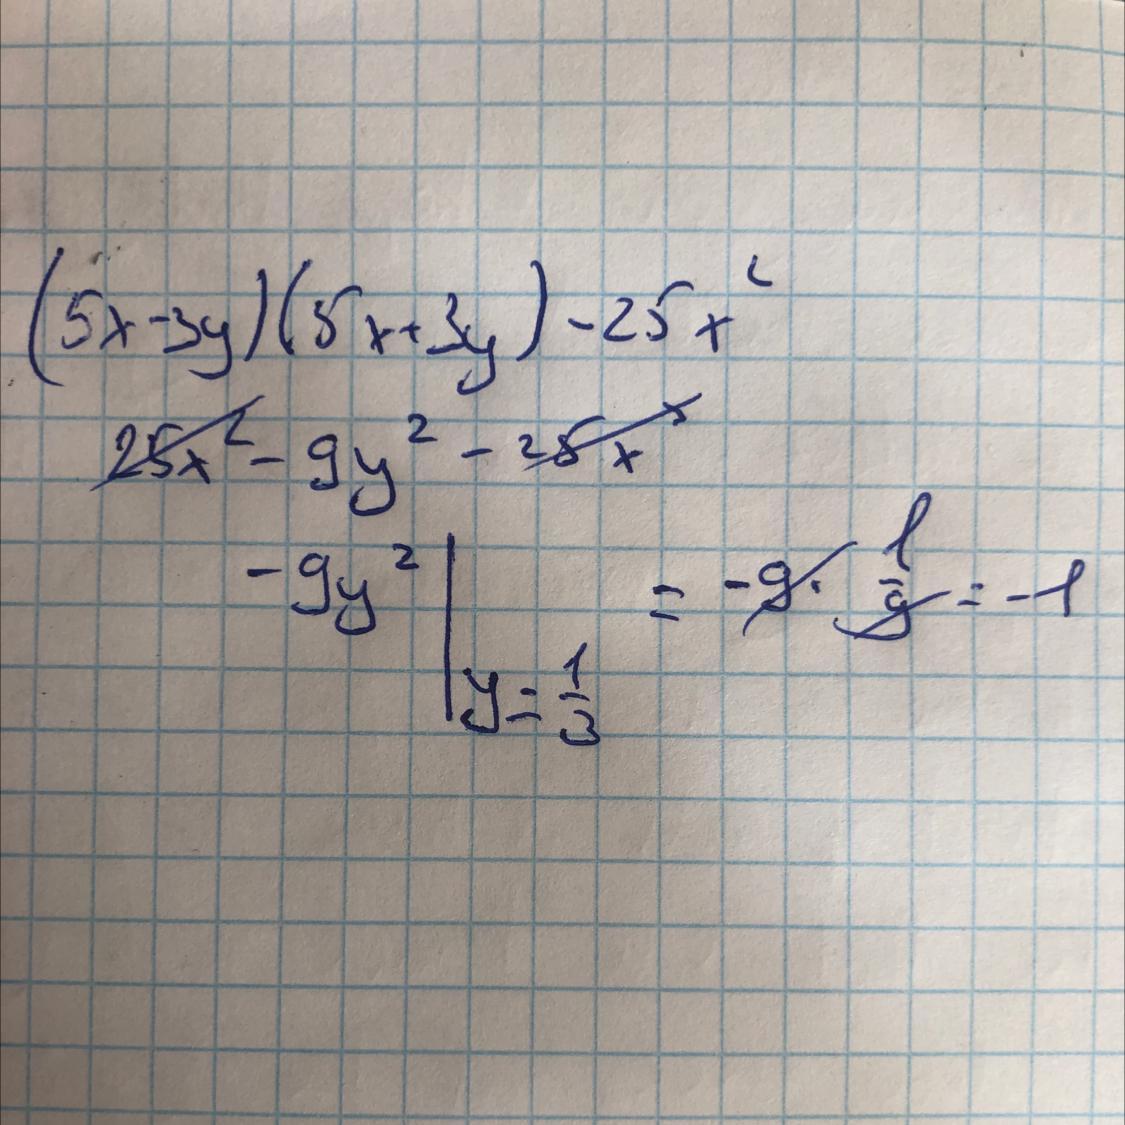 (5x-3y)(5x+3y)-25x²
25x²-9y²-25x²
-9y² | y=1/3 = -9·1/9=-1